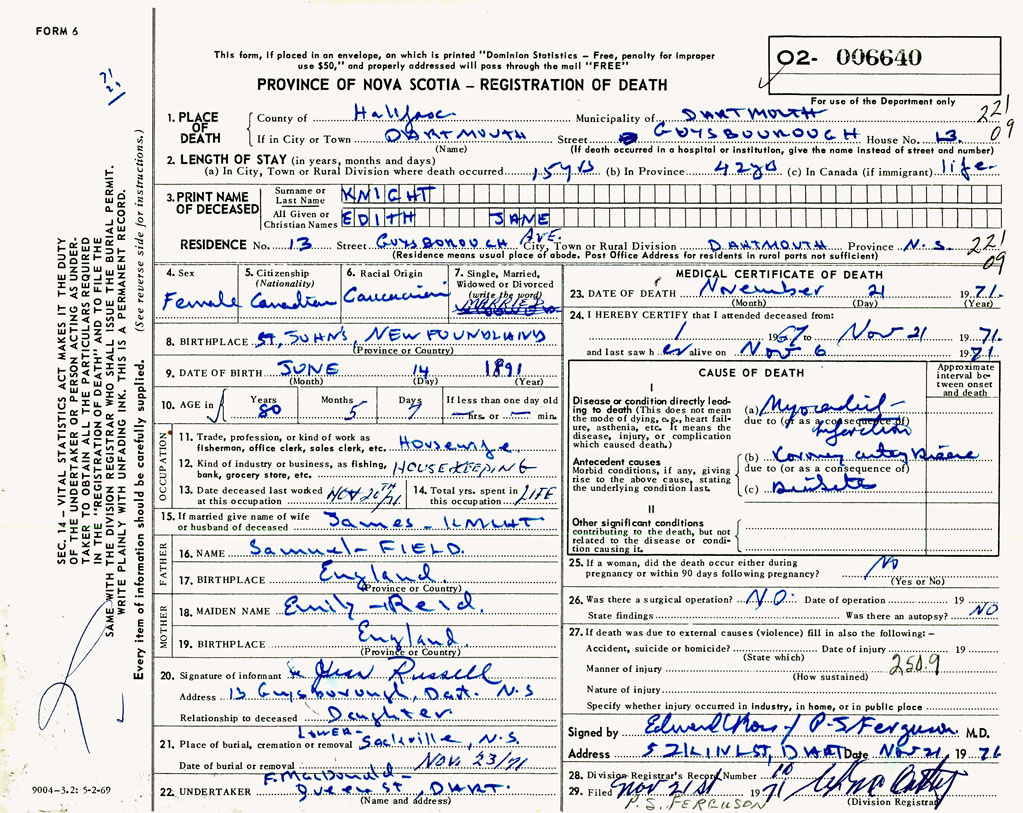 FORM 6
71
21
This form, if placed in an envelope, on which is printed "Dominion Statistics – Free, penalty for improper
use $50," and properly addressed will pass through the mail "FREE"
PROVINCE OF NOVA SCOTIA – REGISTRATION OF DEATH
02- 006640
For use of the Department only
1. PLACE OF DEATH County of Halifax Municipality of DARTMOUTH 221
If in City or Town DARTMOUTH Street GUYSBOUROUGH House No. 13. 09
(Name) (If death occurred in a hospital or institution, give the name instead of street and number)
2. LENGTH OF STAY (in years, months and days)
(a) In City, Town or Rural Division where death occurred 15 yrs (b) In Province 42 yrs (c) In Canada (if immigrant) life
3. PRINT NAME OF DECEASED Surname or Last Name KNIGHT
All Given or Christian Names EDITH JANE
RESIDENCE No. 13 Street GUYSBOROUGH AVE. City, Town or Rural Division DARTMOUTH Province N.S. 221
(Residence means usual place of abode. Post Office Address for residents in rural parts not sufficient) 09
4. Sex Female
5. Citizenship (Nationality) Canadian
6. Racial Origin Caucasian
7. Single, Married, Widowed or Divorced (write the word) MARRIED
8. BIRTHPLACE ST, JOHN'S, NEW FOUNDLAND
(Province or Country)
9. DATE OF BIRTH JUNE 14 1891
(Month) (Day) (Year)
10. AGE in Years 80 Months 5 Days 7 If less than one day old hrs. or min.
OCCUPATION
11. Trade, profession, or kind of work as fisherman, office clerk, sales clerk, etc. Housewife
12. Kind of industry or business, as fishing, bank, grocery store, etc. HOUSEKEEPING
13. Date deceased last worked at this occupation NOV 20TH/71
14. Total yrs. spent in this occupation LIFE
15. If married give name of wife or husband of deceased James - KNIGHT
FATHER
16. NAME Samuel – FIELD.
17. BIRTHPLACE England
(Province or Country)
MOTHER
18. MAIDEN NAME Emily – Reid.
19. BIRTHPLACE England
(Province or Country)
20. Signature of informant Russell
Address 13 Guysborough, Dart. N.S
Relationship to deceased Daughter
21. Place of burial, cremation or removal LOWER – Sackville, N.S.
Date of burial or removal Nov. 23/71
22. UNDERTAKER F. MacDonald – Queen St, DART.
(Name and address)
9004–3.2: 5-2-69
SEC. 14 – VITAL STATISTICS ACT MAKES IT THE DUTY
OF THE UNDERTAKER OR PERSON ACTING AS UNDER-
TAKER TO OBTAIN THE PARTICULARS REQUIRED
IN THE "REGISTRATION OF DEATH" AND TO FILE THE
SAME WITH THE DIVISION REGISTRAR WHO SHALL ISSUE THE BURIAL PERMIT.
WRITE PLAINLY WITH UNFADING INK. THIS IS A PERMANENT RECORD.
Every item of information should be carefully supplied. (See reverse side for instructions.)
MEDICAL CERTIFICATE OF DEATH
23. DATE OF DEATH November 21 1971.
(Month) (Day) (Year)
24. I HEREBY CERTIFY that I attended deceased from:
1 1967 to Nov 21 1971.
and last saw her alive on Nov 6 1971
CAUSE OF DEATH
Approximate interval between onset and death
I
Disease or condition directly leading to death (This does not mean the mode of dying, e.g., heart failure, asthenia, etc. It means the disease, injury, or complication which caused death.)
(a) Myocardial infarction
due to (or as a consequence of)
Antecedent causes
Morbid conditions, if any, giving rise to the above cause, stating the underlying condition last.
(b) Coronary artery Disease
due to (or as a consequence of)
(c) Diabetes
II
Other significant conditions contributing to the death, but not related to the disease or condition causing it.
25. If a woman, did the death occur either during pregnancy or within 90 days following pregnancy? No
(Yes or No)
26. Was there a surgical operation? NO. Date of operation 19
State findings Was there an autopsy? NO
27. If death was due to external causes (violence) fill in also the following: –
Accident, suicide or homicide? Date of injury 19
(State which)
Manner of injury 250.9
(How sustained)
Nature of injury
Specify whether injury occurred in industry, in home, or in public place
Signed by Edward Ross / P-S Ferguson M.D.
Address DART Date Nov 21, 19 76
28. Division Registrar's Record Number 10
29. Filed Nov 21st 1971
(Division Registrar)
P.S. FERGUSON